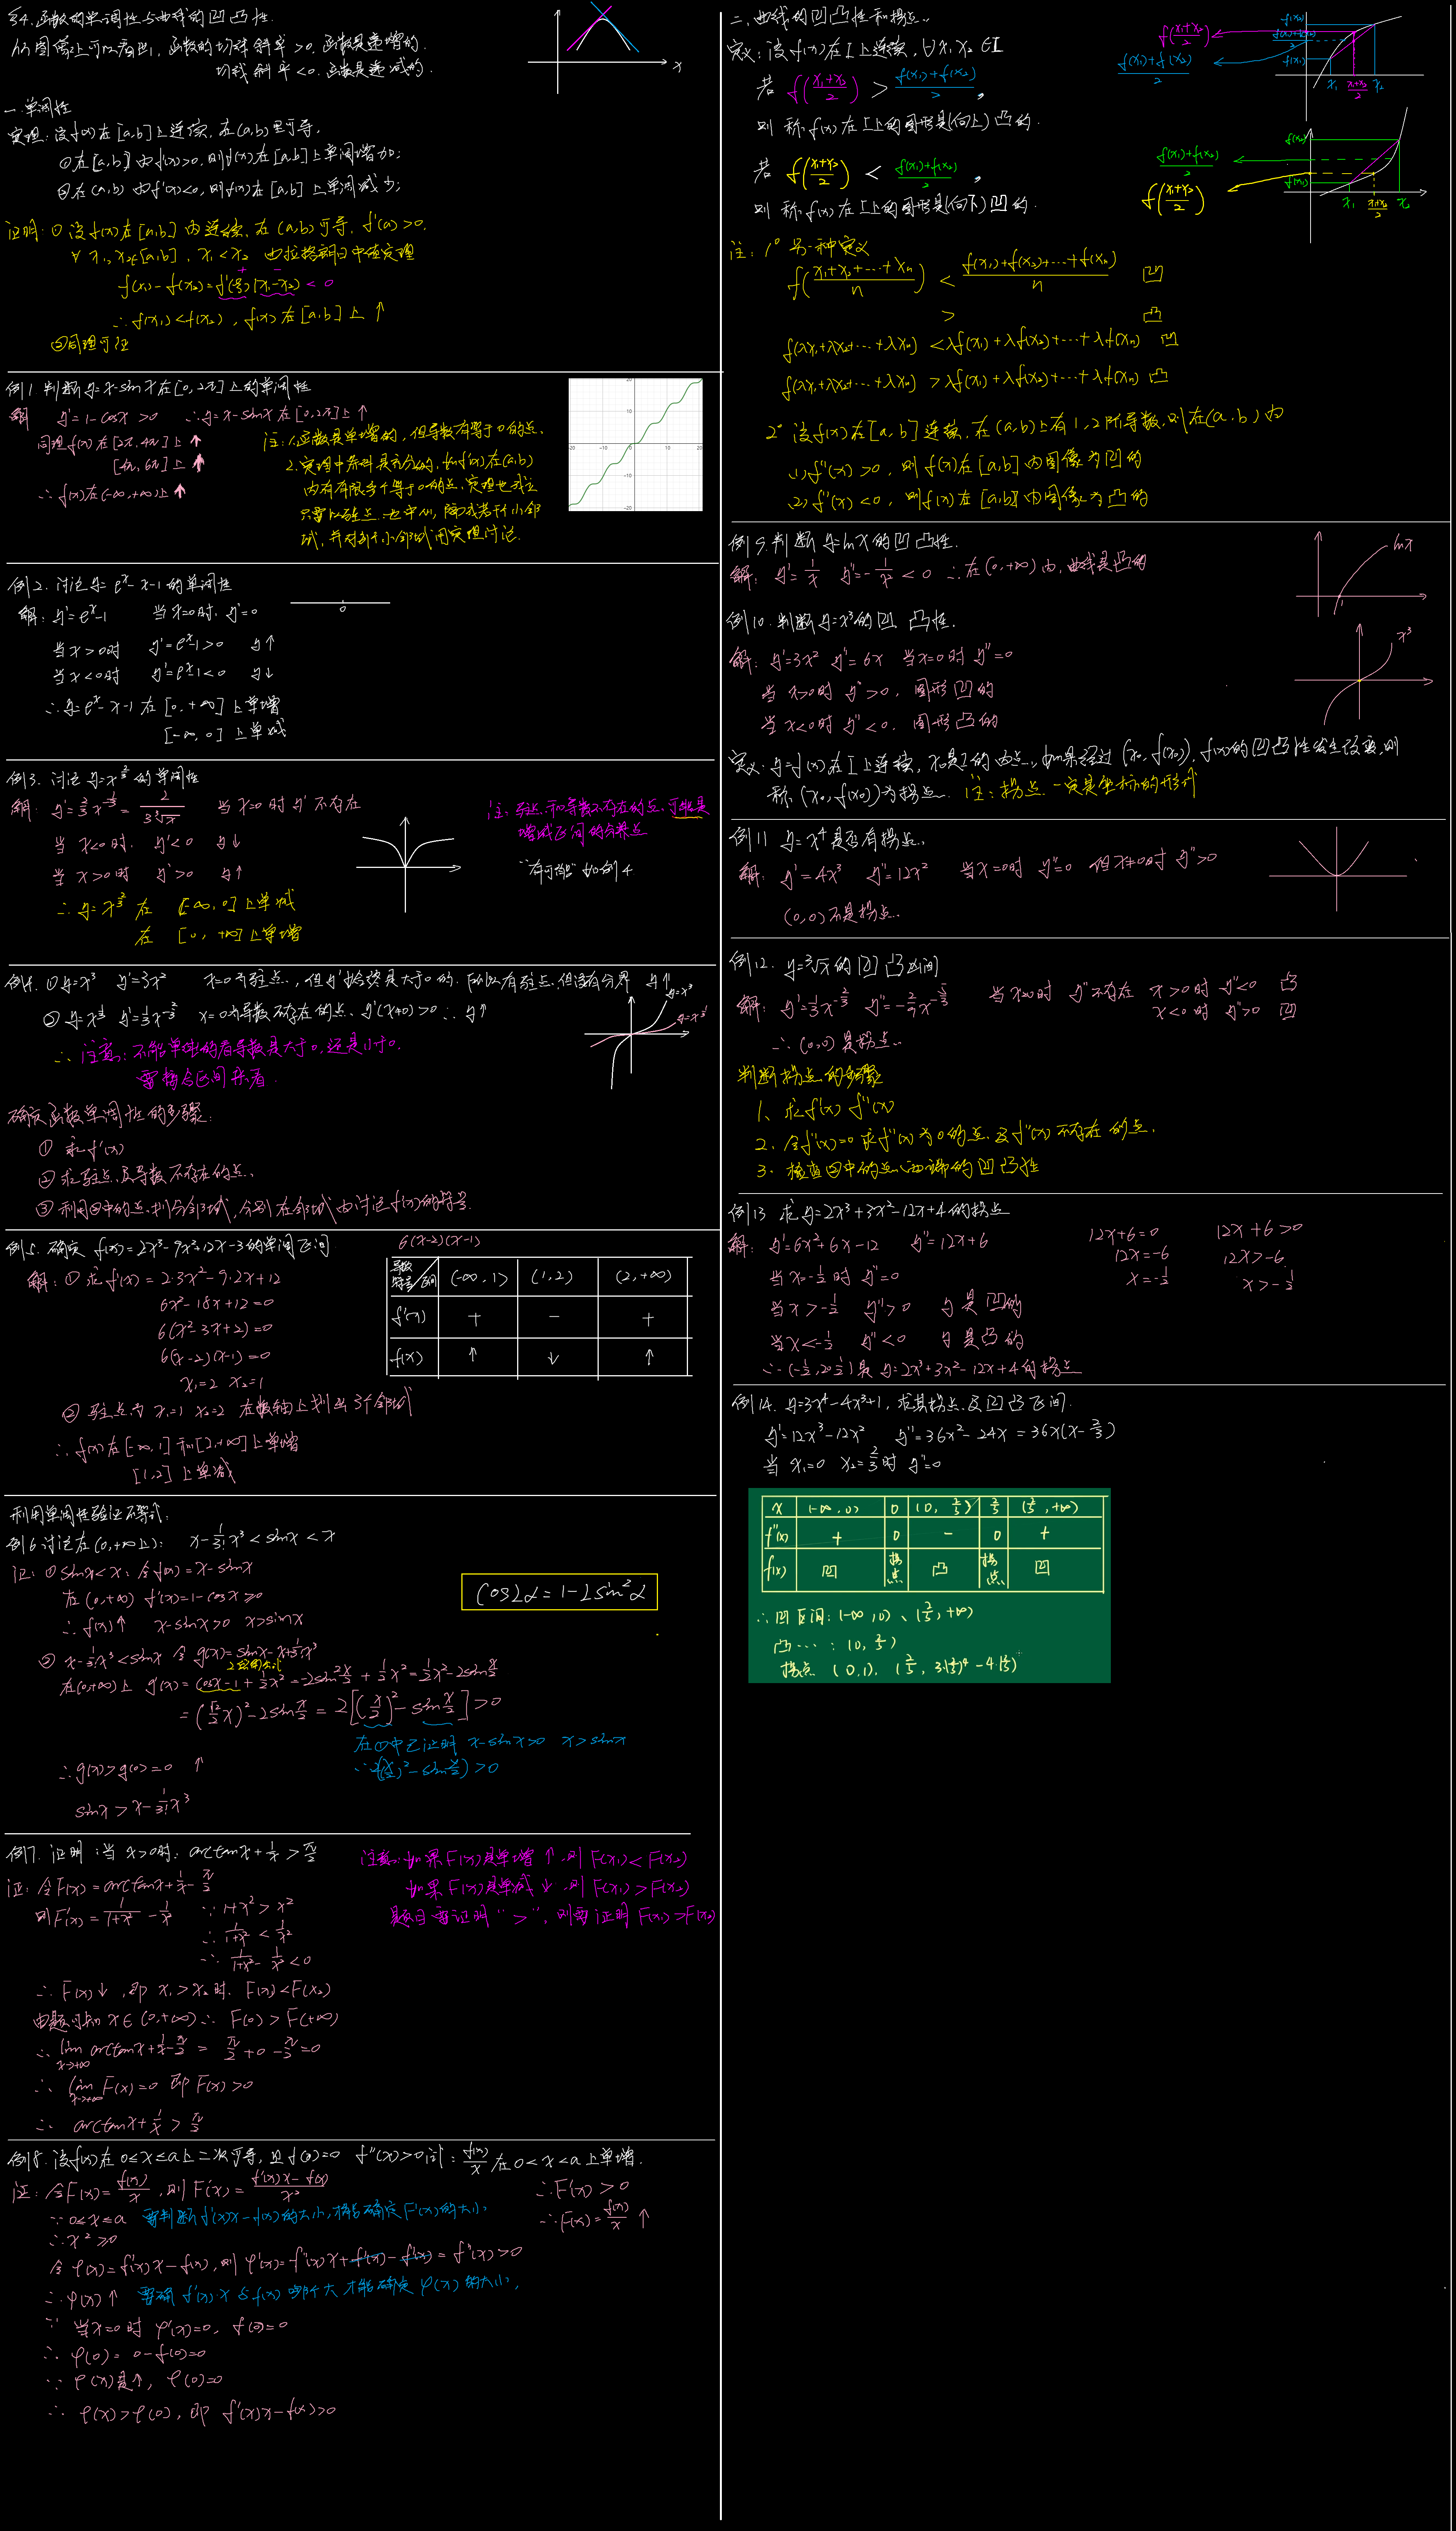 §4.函数的单调性与曲线的凹凸性.
从图像上可以看出, 函数的切线斜率>0, 函数是递增的.
切线斜率<0. 函数是递减的.
x
一.单调性
定理: 设f(x)在[a,b]上连续, 在(a,b)里可导,
①在[a,b]内f'(x)>0, 则f(x)在[a,b]上单调增加;
②在(a,b)内f'(x)<0, 则f(x)在[a,b]上单调减少;
证明: ①设f(x)在[a,b]内连续, 在(a,b)可导, f'(a)>0,
∀ x₁,x₂∈[a,b], x₁<x₂ 由拉格朗日中值定理
+ −
f(x₁)-f(x₂)=f'(ξ)(x₁-x₂)<0
∴ f(x₁)<f(x₂), f(x)在[a,b]上↑
②同理可证
例1. 判断y=x-sinx在[0,2π]上的单调性
解 y'=1-cosx>0 ∴y=x-sinx在[0,2π]上↑
同理f(x)在[2π,4π]上↑
[4π,6π]上↑
∴ f(x)在(-∞,+∞)上↑
注: 1.函数是单增的, 但导数有等于0的点.
2.定理中条件是充分的, 如f'(x)在(a,b)
内有有限多个等于0的点, 定理也成立
只要以驻点为中心, 隔成若干小邻
域, 并对若干小邻域用定理讨论.
例2. 讨论y=eˣ-x-1的单调性
解: y'=eˣ-1 当x=0时, y'=0
0
当x>0时 y'=eˣ-1>0 y↑
当x<0时 y'=eˣ-1<0 y↓
∴y=eˣ-x-1在[0,+∞]上单增
[-∞,0]上单减
例3. 讨论y=x^⅔的单调性
解: y'=⅔x^-⅓=2/(3∛x) 当x=0时y'不存在
当x<0时, y'<0 y↓
当x>0时 y'>0 y↑
∴ y=x^⅔在 [-∞,0]上单减
在 [0,+∞]上单增
注: 驻点和导数不存在的点, 可能是
增减区间的分界点
"有可能" 如例4
例4. ①y=x³ y'=3x² x=0为驻点, 但y'始终是大于0的. 所以有驻点, 但没有分界 y↑
②y=x^⅓ y'=⅓x^-⅔ x=0为导数不存在的点, y'(x≠0)>0 ∴ y↑
y=x³
y=x^⅓
∴ 注意: 不能单纯的看导数是大于0, 还是小于0.
要结合区间来看.
确定函数单调性的步骤:
① 求f'(x)
②求驻点及导数不存在的点.
③利用②中的点, 划分邻域, 分别在邻域内讨论f'(x)的符号.
例5. 确定 f(x)=2x³-9x²+12x-3的单调区间
解: ①求f'(x)=2·3x²-9·2x+12
6x²-18x+12=0
6(x²-3x+2)=0
6(x-2)(x-1)=0
x₁=2 x₂=1
②驻点为x₁=1 x₂=2 在数轴上划出3个邻域
∴ f(x)在[-∞,1]和[2,+∞]上单增
[1,2]上单减
6(x-2)(x-1)
导数符号/区间 (-∞,1) (1,2) (2,+∞)
f'(x) + − +
f(x) ↑ ↓ ↑
利用单调性验证不等式:
例6 讨论在(0,+∞上): x-1/3! x³<sinx<x
证: ①sinx<x: 令f(x)=x-sinx
在(0,+∞) f'(x)=1-cosx≥0
∴ f(x)↑ x-sinx>0 x>sinx
②x-1/3! x³<sinx 令g(x)=sinx-x+1/3! x³
2倍角公式
在(0,+∞)上 g'(x)=cosx-1+½x²=-2sin²x/2+½x²=½x²-2sin²x/2
=(√2/2 x)²-2sin x/2=2[(x/2)²-sin x/2]>0
cos2α=1-2sin²α
在①中已证明 x-sinx>0 x>sinx
∴2((x/2)²-sin x/2)>0
∴g(x)>g(0)=0 ↑
sinx>x-1/3! x³
例7. 证明: 当x>0时: arctanx+1/x>π/2
证: 令F(x)=arctanx+1/x-π/2
则F'(x)=1/(1+x²)-1/x² ∵1+x²>x²
∴1/(1+x²)<1/x²
∴1/(1+x²)-1/x²<0
注意: 如果F(x)是单增↑ 则F(x₁)<F(x₂)
如果F(x)是单减↓ 则F(x₁)>F(x₂)
题目要证明">", 则要证明F(x₁)>F(x₂)
∴ F(x)↓, 即x₁>x₂时, F(x₁)<F(x₂)
由题可知x∈(0,+∞) ∴ F(0)>F(+∞)
∴ lim x→+∞ arctanx+1/x-π/2=π/2+0-π/2=0
∴ lim x→+∞ F(x)=0 即F(x)>0
∴ arctanx+1/x>π/2
例8. 设f(x)在0≤x≤a上二次可导, 且f(0)=0 f''(x)>0 证: f(x)/x在0<x<a上单增.
证: 令F(x)=f(x)/x, 则F'(x)=(f'(x)x-f(x))/x² ∴F'(x)>0
∵ 0≤x≤a 要判断f'(x)x-f(x)的大小, 才能确定F'(x)的大小 ∴F(x)=f(x)/x↑
∴x²≥0
令φ(x)=f'(x)x-f(x), 则φ'(x)=f''(x)x+f'(x)-f'(x)=f''(x)>0
∴φ(x)↑ 要确f'(x)·x与f(x)哪个大才能确定φ(x)的大小,
∵ 当x=0时 φ'(x)=0, f(0)=0
∴ φ(0)=0-f(0)=0
∵ φ(x)是↑, φ(0)=0
∴ φ(x)>φ(0), 即f'(x)x-f(x)>0
二.曲线的凹凸性和拐点.
定义: 设f(x)在I上连续, ∀x₁,x₂∈I
若 f((x₁+x₂)/2)>(f(x₁)+f(x₂))/2,
则称f(x)在I上的图形是(向上)凸的.
若 f((x₁+x₂)/2)<(f(x₁)+f(x₂))/2,
则称f(x)在I上的图形是(向下)凹的.
f((x₁+x₂)/2)
(f(x₁)+f(x₂))/2
f(x₂)
(f(x₁)+f(x₂))/2
f(x₁)
x₁ (x₁+x₂)/2 x₂
(f(x₁)+f(x₂))/2
f((x₁+x₂)/2)
f(x₂)
f(x₁)
x₁ (x₁+x₂)/2 x₂
注: 1° 另一种定义
f((x₁+x₂+⋯+xₙ)/n)<(f(x₁)+f(x₂)+⋯+f(xₙ))/n 凹
> 凸
f(λx₁+λx₂+⋯+λxₙ)<λf(x₁)+λf(x₂)+⋯+λf(xₙ) 凹
f(λx₁+λx₂+⋯+λxₙ)>λf(x₁)+λf(x₂)+⋯+λf(xₙ) 凸
2° 设f(x)在[a,b]连续, 在(a,b)上有1,2阶导数, 则在(a,b)内
(1)f''(x)>0, 则f(x)在[a,b]内图像为凹的
(2)f''(x)<0, 则f(x)在[a,b]内图像为凸的
例9. 判断y=lnx的凹凸性.
解: y'=1/x y''=-1/x²<0 ∴在(0,+∞)内, 曲线是凸的
lnx
1
例10. 判断y=x³的凹凸性.
解: y'=3x² y''=6x 当x=0时y''=0
当x>0时y''>0, 图形凹的
当x<0时y''<0, 图形凸的
x³
定义: y=f(x)在I上连续, x₀是I的内点, 如果经过(x₀,f(x₀)), f(x)的凹凸性发生改变, 则
称(x₀,f(x₀))为拐点. 注: 拐点一定是坐标的形式
例11 y=x⁴是否有拐点.
解: y'=4x³ y''=12x² 当x=0时y''=0 但x≠0时y''>0
(0,0)不是拐点.
例12. y=∛x的凹凸区间
解: y'=⅓x^-⅔ y''=-2/9x^-5/3 当x=0时y''不存在 x>0时y''<0 凸
x<0时y''>0 凹
∴ (0,0)是拐点.
判断拐点的步骤
1、求f'(x) f''(x)
2、令f''(x)=0 求f''(x)为0的点及f''(x)不存在的点.
3、检查②中的点, 两端的凹凸性
例13 求y=2x³+3x²-12x+4的拐点
解: y'=6x²+6x-12 y''=12x+6
当x=-½时y''=0
当x>-½ y''>0 y是凹的
当x<-½ y''<0 y是凸的
∴ (-½,20½)是y=2x³+3x²-12x+4的拐点
12x+6=0
12x=-6
x=-½
12x+6>0
12x>-6
x>-½
例14. y=3x⁴-4x³+1, 求其拐点及凹凸区间.
y'=12x³-12x² y''=36x²-24x=36x(x-⅔)
当x₁=0 x₂=⅔时y''=0
x (-∞,0) 0 (0,⅔) ⅔ (⅔,+∞)
f''(x) + 0 − 0 +
f(x) 凹 拐点 凸 拐点 凹
∴凹区间: (-∞,0)、(⅔,+∞)
凸⋯: (0,⅔)
拐点 (0,1), (⅔, 3·(⅔)⁴-4·(⅔)³)